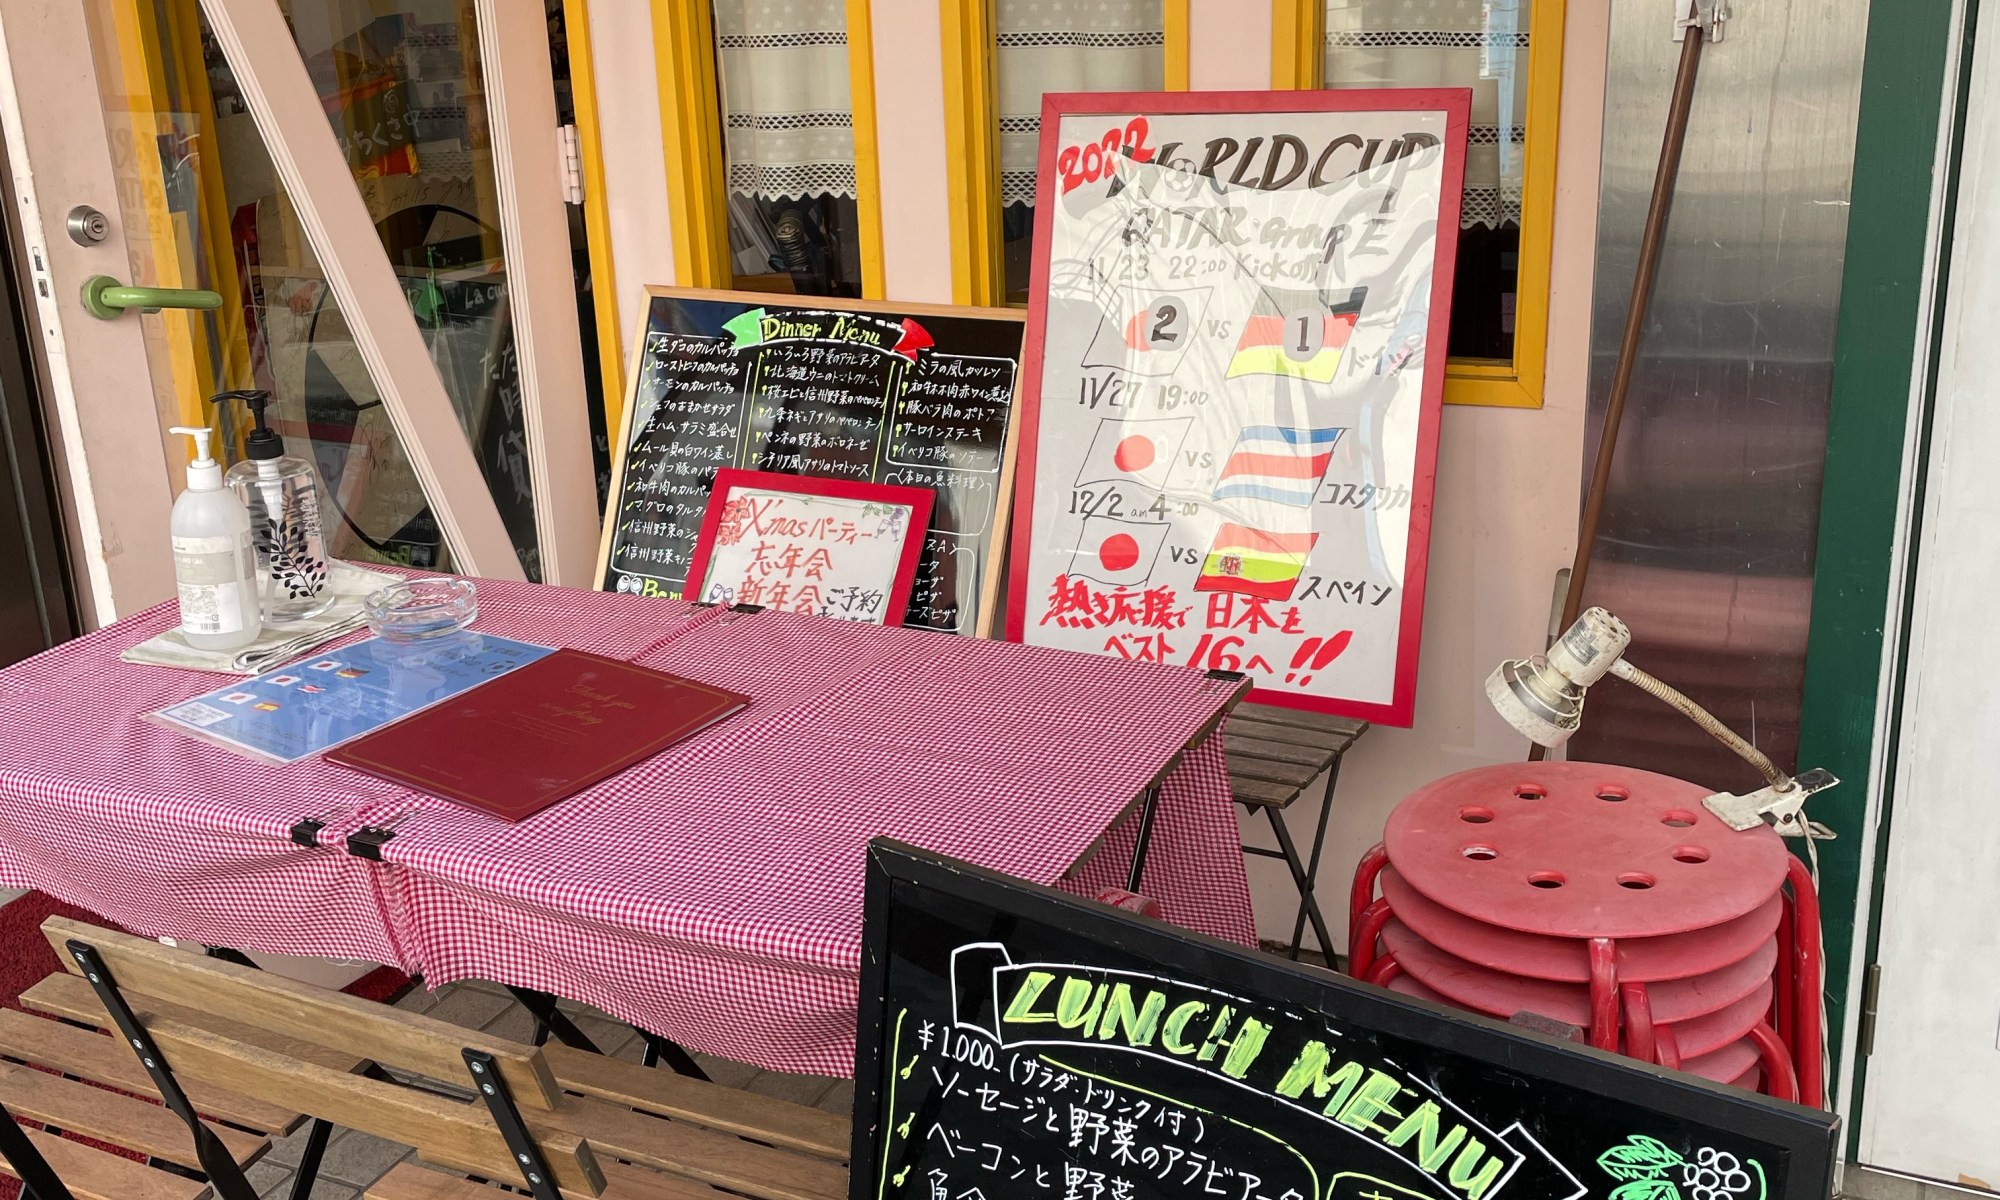 2022 WORLD CUP
QATAR Group E
11/23 22:00 Kickoff
2 vs 1 ドイツ
11/27 19:00
vs コスタリカ
12/2 am 4:00
vs スペイン
熱き応援で 日本を
ベスト16へ!!
Dinner Menu
生ダコのカルパッチョ
ローストビーフのカルパッチョ
サーモンのカルパッチョ
シェフのおまかせサラダ
生ハム・サラミ盛合せ
ムール貝の白ワイン蒸し
イベリコ豚の
和牛肉のカル
マグロのタルタ
信州野菜の
信州野菜
いろいろ野菜のアラビアータ
北海道ウニのトマトクリーム
桜エビと信州野菜のペペロンチーノ
九条ネギとアサリのペペロンチーノ
ペンネの野菜のボロネーゼ
シチリア風アサリのトマトソース
ミラノ風カツレツ
和牛ホホ肉赤ワイン煮込
豚バラ肉のポトフ
サーロインステーキ
イベリコ豚のソテー
〈本日の魚料理〉
ZA〉
X'masパーティー
忘年会
新年会 ご予約
Thank you
for
everything
LUNCH MENU
¥1.000_(サラダ・ドリンク付)
ソーセージと野菜のアラビアータ
ベーコンと野菜